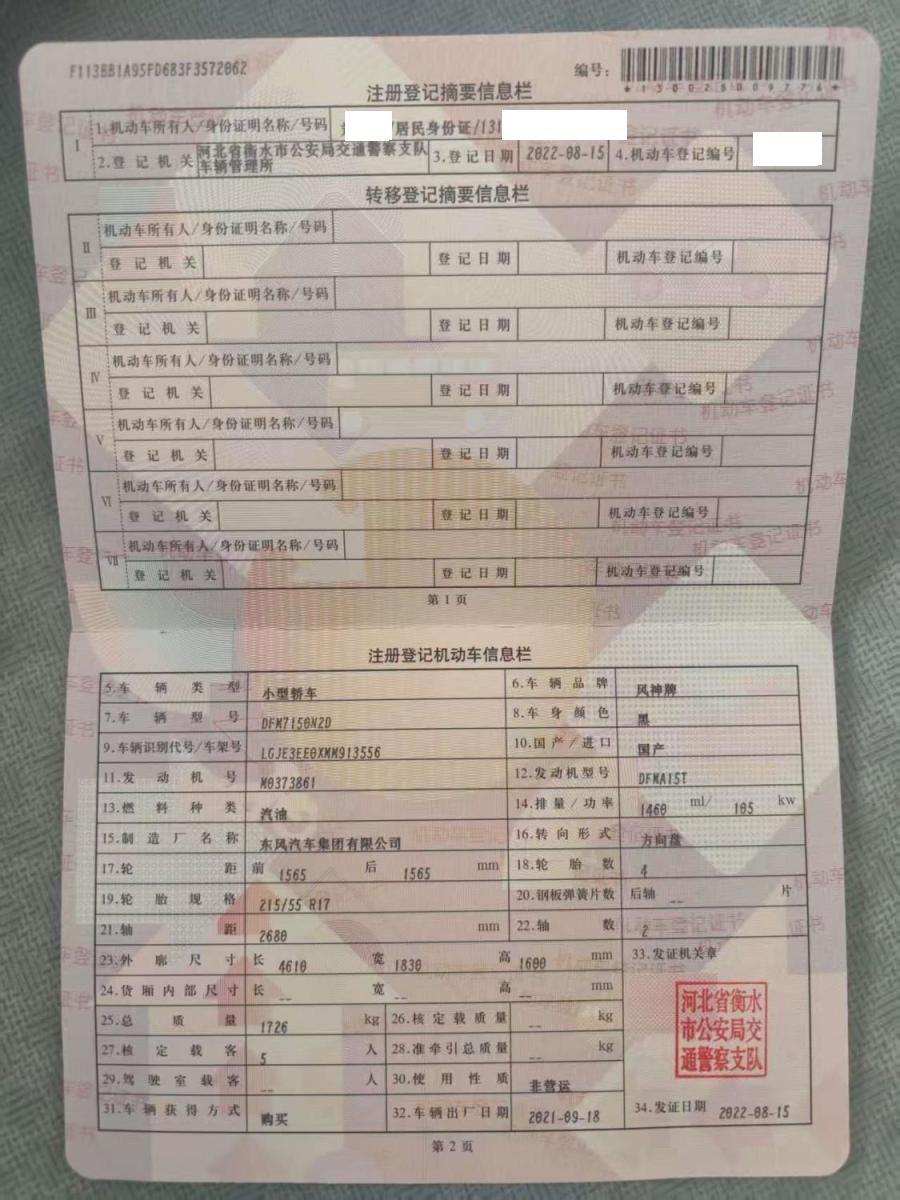 F113BB1A95FD683F3572062
编号：
*130028009776*
注册登记摘要信息栏
Ⅰ 1.机动车所有人/身份证明名称/号码 /居民身份证/131
2.登记机关 河北省衡水市公安局交通警察支队车辆管理所 3.登记日期 2022-08-15 4.机动车登记编号
转移登记摘要信息栏
Ⅱ 机动车所有人/身份证明名称/号码
登记机关 登记日期 机动车登记编号
Ⅲ 机动车所有人/身份证明名称/号码
登记机关 登记日期 机动车登记编号
Ⅳ 机动车所有人/身份证明名称/号码
登记机关 登记日期 机动车登记编号
Ⅴ 机动车所有人/身份证明名称/号码
登记机关 登记日期 机动车登记编号
Ⅵ 机动车所有人/身份证明名称/号码
登记机关 登记日期 机动车登记编号
Ⅶ 机动车所有人/身份证明名称/号码
登记机关 登记日期 机动车登记编号
第1页
注册登记机动车信息栏
5.车辆类型 小型轿车 6.车辆品牌 风神牌
7.车辆型号 DFM7150N2D 8.车身颜色 黑
9.车辆识别代号/车架号 LGJE3EE0XMM913556 10.国产/进口 国产
11.发动机号 M0373861 12.发动机型号 DFMA15T
13.燃料种类 汽油 14.排量/功率 1460 ml/ 105 kw
15.制造厂名称 东风汽车集团有限公司 16.转向形式 方向盘
17.轮距 前 1565 后 1565 mm 18.轮胎数 4
19.轮胎规格 215/55 R17 20.钢板弹簧片数 后轴 -- 片
21.轴距 2680 mm 22.轴数 2
23.外廓尺寸 长 4610 宽 1830 高 1600 mm 33.发证机关章
24.货厢内部尺寸 长 -- 宽 -- 高 -- mm
25.总质量 1726 kg 26.核定载质量 -- kg
27.核定载客 5 人 28.准牵引总质量 -- kg
29.驾驶室载客 -- 人 30.使用性质 非营运
31.车辆获得方式 购买 32.车辆出厂日期 2021-09-18 34.发证日期 2022-08-15
河北省衡水
市公安局交
通警察支队
第2页